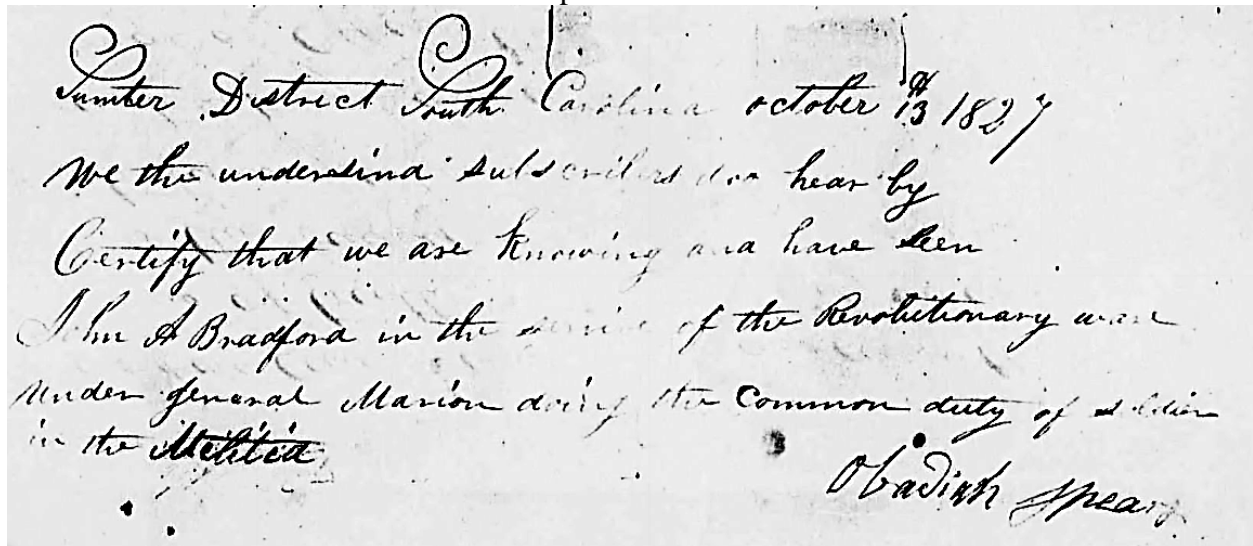 Sumter District South Carolina october 13th 1827
We the undersind subscribers doo hear by
Certify that we are Knowing and have seen
John A Bradford in the service of the Revolutionary ware
under general Marion doing the common duty of soldier
in the Militia
Obadiah Spears